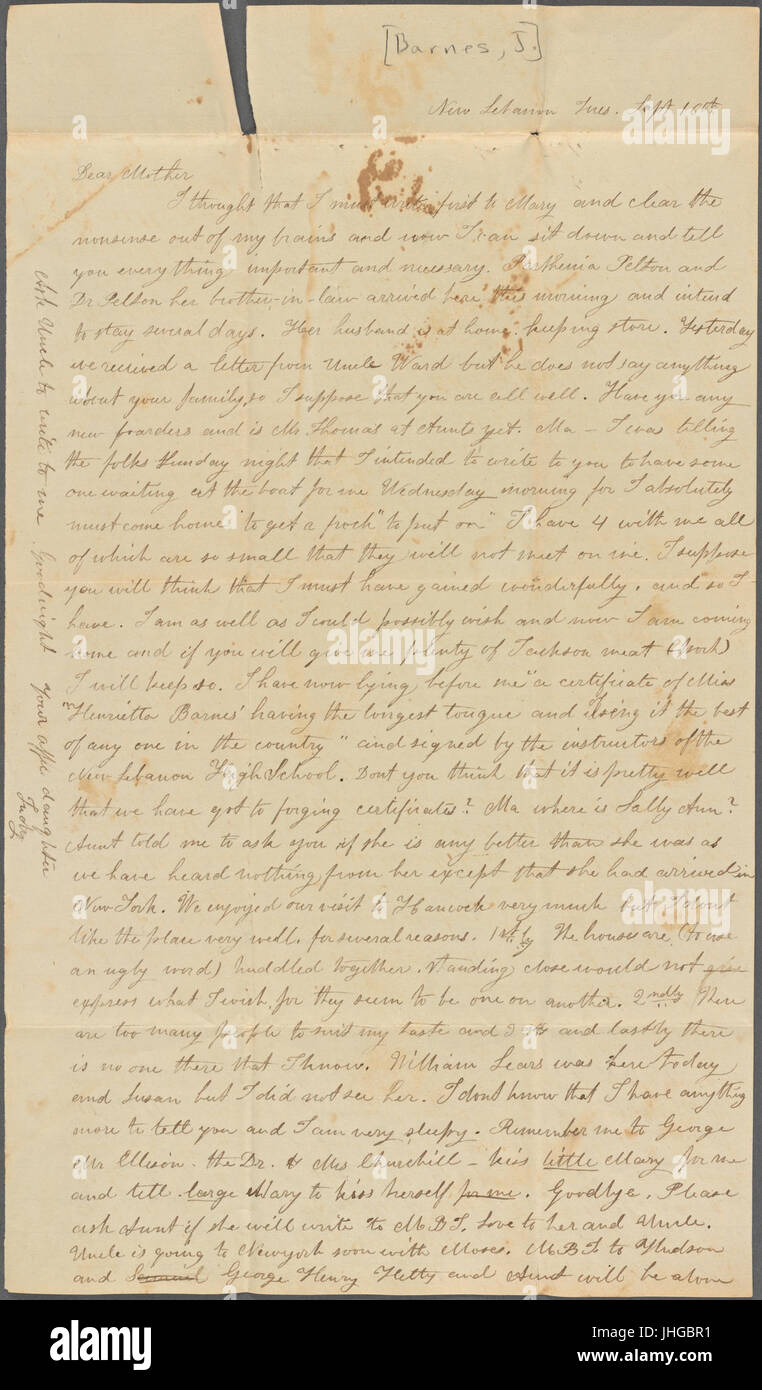 [Barnes, J.]
New Lebanon Tues. Sept 18th
Dear Mother
I thought that I must write first to Mary and clear the
nonsense out of my brains and now I can sit down and tell
you everything important and necessary. Parthenia Pelton and
Dr Pelton her brother-in-law arrived here this morning and intend
to stay several days. Her husband is at home keeping store. Yesterday
we received a letter from Uncle Ward but he does not say anything
about your family, so I suppose that you are all well. Have you any
new boarders and is Mr. Thomas at Aunts yet. Ma – I was telling
the folks Sunday night that I intended to write to you to have some
one waiting at the boat for me Wednesday morning for I absolutely
must come home "to get a frock" to put on" I have 4 with me all
of which are so small that they will not meet on me. I suppose
you will think that I must have gained wonderfully, and so I
have. I am as well as I could possibly wish and now I am coming
home and if you will give me plenty of Jackson meat (pork)
I will keep so. I have now lying before me "a certificate of Miss
"Henrietta Barnes' having the longest tongue and using it the best
of any one in the country" and signed by the instructors of the
New Lebanon High School. Dont you think that it is pretty well
that we have got to forging certificates? Ma where is Sally Ann?
Aunt told me to ask you if she is any better than she was as
we have heard nothing from her except that she had arrived in
New York. We enjoyed our visit to Hancock very much but I dont
like the place very well, for several reasons. 1stly The houses are, (to use
an ugly word) huddled together. standing close would not give
express what I wish, for they seem to be one on another. 2ndly There
are too many people to suit my taste and 3 and lastly there
is no one there that I know. William Sears was here today
and Susan but I did not see her. I dont know that I have anything
more to tell you and I am very sleepy. Remember me to George
Mr Ellison. the Dr. & Mrs Churchill – kiss little Mary for me
and tell large Mary to kiss herself for me. Goodbye. Please
ask Aunt if she will write to M.B.T. Love to her and Uncle.
Uncle is going to Newyork soon with Moses. M.B.T to Hudson
and Samuel George Henry Hetty and Aunt will be alone
Ask Uncle to write to me. Goodnight your affe daughter
Judy
alamy
Image ID: JHGBR1
www.alamy.com